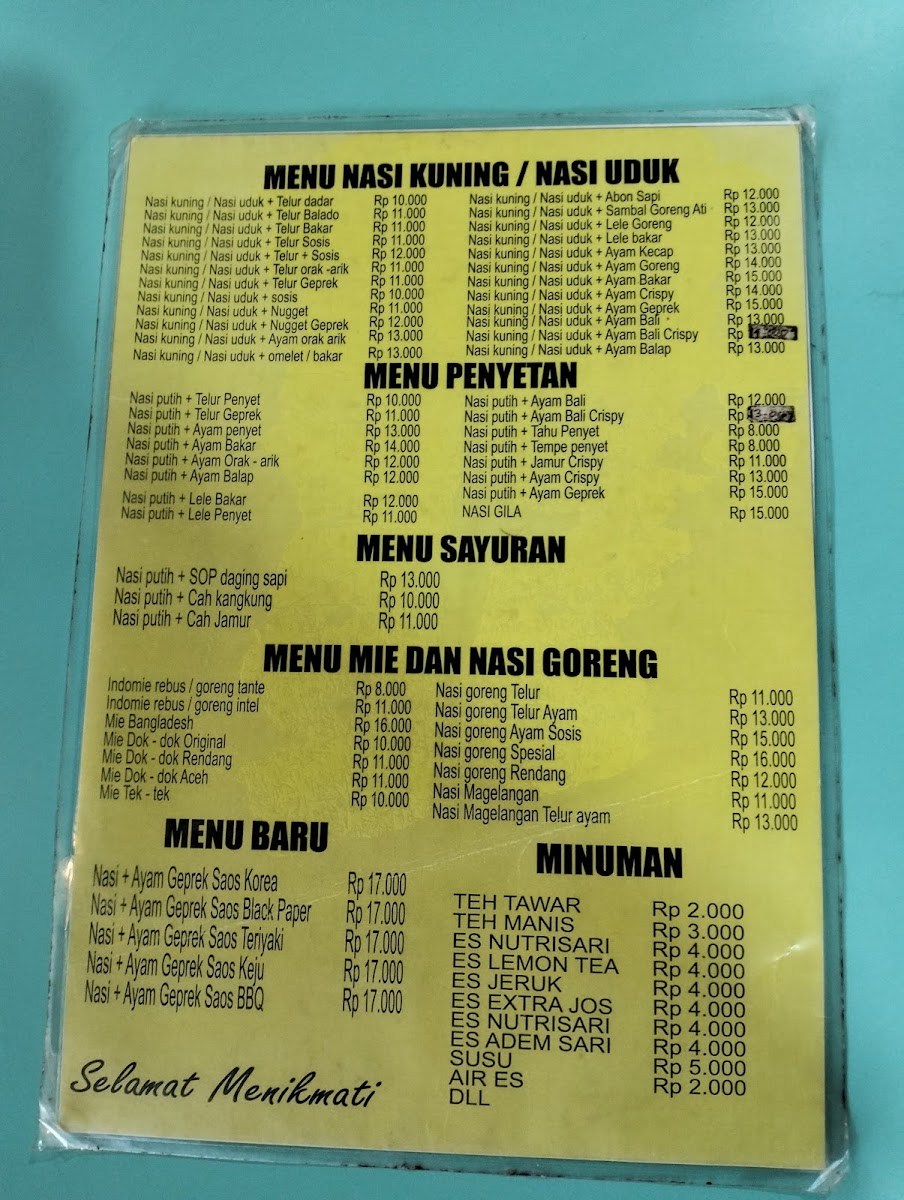 MENU NASI KUNING / NASI UDUK
Nasi kuning / Nasi uduk + Telur dadar Rp 10.000
Nasi kuning / Nasi uduk + Telur Balado Rp 11.000
Nasi kuning / Nasi uduk + Telur Bakar Rp 11.000
Nasi kuning / Nasi uduk + Telur Sosis Rp 11.000
Nasi kuning / Nasi uduk + Telur + Sosis Rp 12.000
Nasi kuning / Nasi uduk + Telur orak -arik Rp 11.000
Nasi kuning / Nasi uduk + Telur Geprek Rp 11.000
Nasi kuning / Nasi uduk + sosis Rp 10.000
Nasi kuning / Nasi uduk + Nugget Rp 11.000
Nasi kuning / Nasi uduk + Nugget Geprek Rp 12.000
Nasi kuning / Nasi uduk + Ayam orak arik Rp 13.000
Nasi kuning / Nasi uduk + omelet / bakar Rp 13.000
Nasi kuning / Nasi uduk + Abon Sapi Rp 12.000
Nasi kuning / Nasi uduk + Sambal Goreng Ati Rp 13.000
Nasi kuning / Nasi uduk + Lele Goreng Rp 12.000
Nasi kuning / Nasi uduk + Lele bakar Rp 13.000
Nasi kuning / Nasi uduk + Ayam Kecap Rp 13.000
Nasi kuning / Nasi uduk + Ayam Goreng Rp 14.000
Nasi kuning / Nasi uduk + Ayam Bakar Rp 15.000
Nasi kuning / Nasi uduk + Ayam Crispy Rp 14.000
Nasi kuning / Nasi uduk + Ayam Geprek Rp 15.000
Nasi kuning / Nasi uduk + Ayam Bali Rp 13.000
Nasi kuning / Nasi uduk + Ayam Bali Crispy Rp
Nasi kuning / Nasi uduk + Ayam Balap Rp 13.000
MENU PENYETAN
Nasi putih + Telur Penyet Rp 10.000
Nasi putih + Telur Geprek Rp 11.000
Nasi putih + Ayam penyet Rp 13.000
Nasi putih + Ayam Bakar Rp 14.000
Nasi putih + Ayam Orak - arik Rp 12.000
Nasi putih + Ayam Balap Rp 12.000
Nasi putih + Lele Bakar Rp 12.000
Nasi putih + Lele Penyet Rp 11.000
Nasi putih + Ayam Bali Rp 12.000
Nasi putih + Ayam Bali Crispy Rp
Nasi putih + Tahu Penyet Rp 8.000
Nasi putih + Tempe penyet Rp 8.000
Nasi putih + Jamur Crispy Rp 11.000
Nasi putih + Ayam Crispy Rp 13.000
Nasi putih + Ayam Geprek Rp 15.000
NASI GILA Rp 15.000
MENU SAYURAN
Nasi putih + SOP daging sapi Rp 13.000
Nasi putih + Cah kangkung Rp 10.000
Nasi putih + Cah Jamur Rp 11.000
MENU MIE DAN NASI GORENG
Indomie rebus / goreng tante Rp 8.000
Indomie rebus / goreng intel Rp 11.000
Mie Bangladesh Rp 16.000
Mie Dok - dok Original Rp 10.000
Mie Dok - dok Rendang Rp 11.000
Mie Dok - dok Aceh Rp 11.000
Mie Tek - tek Rp 10.000
Nasi goreng Telur Rp 11.000
Nasi goreng Telur Ayam Rp 13.000
Nasi goreng Ayam Sosis Rp 15.000
Nasi goreng Spesial Rp 16.000
Nasi goreng Rendang Rp 12.000
Nasi Magelangan Rp 11.000
Nasi Magelangan Telur ayam Rp 13.000
MENU BARU
Nasi + Ayam Geprek Saos Korea Rp 17.000
Nasi + Ayam Geprek Saos Black Paper Rp 17.000
Nasi + Ayam Geprek Saos Teriyaki Rp 17.000
Nasi + Ayam Geprek Saos Keju Rp 17.000
Nasi + Ayam Geprek Saos BBQ Rp 17.000
MINUMAN
TEH TAWAR Rp 2.000
TEH MANIS Rp 3.000
ES NUTRISARI Rp 4.000
ES LEMON TEA Rp 4.000
ES JERUK Rp 4.000
ES EXTRA JOS Rp 4.000
ES NUTRISARI Rp 4.000
ES ADEM SARI Rp 4.000
SUSU Rp 5.000
AIR ES Rp 2.000
DLL
Selamat Menikmati